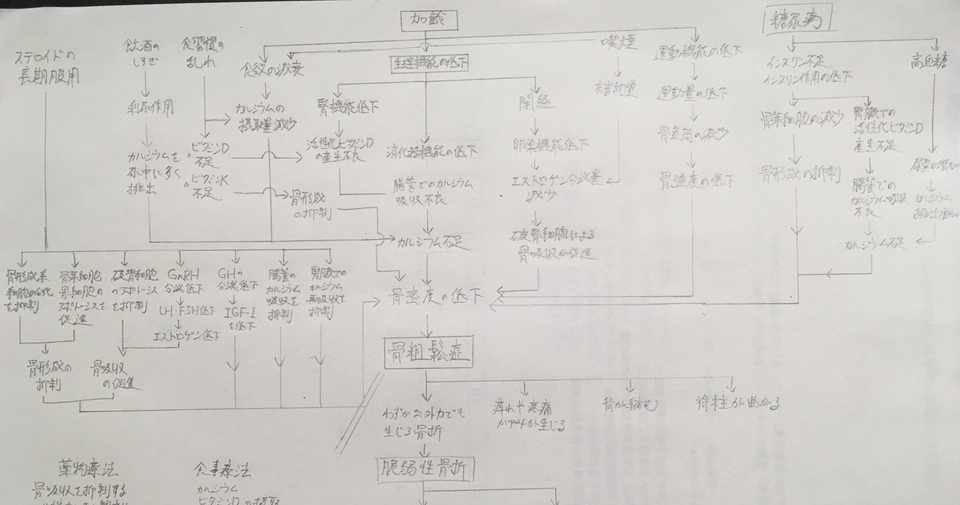 加齢
糖尿病
ステロイドの
長期服用
飲酒の
しすぎ
食習慣の
乱れ
食欲の減衰
生理機能の低下
喫煙
運動機能の低下
インスリン不足
インスリン作用の低下
高血糖
利尿作用
カルシウムの
摂取量減少
腎機能低下
閉経
運動量の低下
骨芽細胞の減少
腎臓での
活性化ビタミンD
産生不良
カルシウムを
尿中に多く
排出
ビタミンD
不足
ビタミンK
不足
活性化ビタミンD
の産生不良
消化器機能の低下
卵巣機能低下
骨強度の低下
骨形成の抑制
骨形成
の抑制
腸管でのカルシウム
吸収不良
エストロゲン分泌
減少
腸管での
カルシウム吸収
不良
カルシウム不足
破骨細胞による
骨吸収が促進
カルシウム不足
骨形成系
を抑制
骨芽細胞
骨細胞の
アポトーシスを
促進
破骨細胞
のアポトーシス
を抑制
GnRH
分泌低下
LH・FSH低下
エストロゲン低下
GHの
分泌低下
IGF-I
を低下
腸管の
カルシウム
吸収を
抑制
腎臓での
カルシウム
再吸収を
抑制
骨密度の低下
骨形成の
抑制
骨吸収
の促進
骨粗鬆症
わずかな外力でも
生じる骨折
痺れや疼痛
が生じる
脊柱が曲がる
脆弱性骨折
薬物療法
骨吸収を抑制する
食事療法
カルシウム